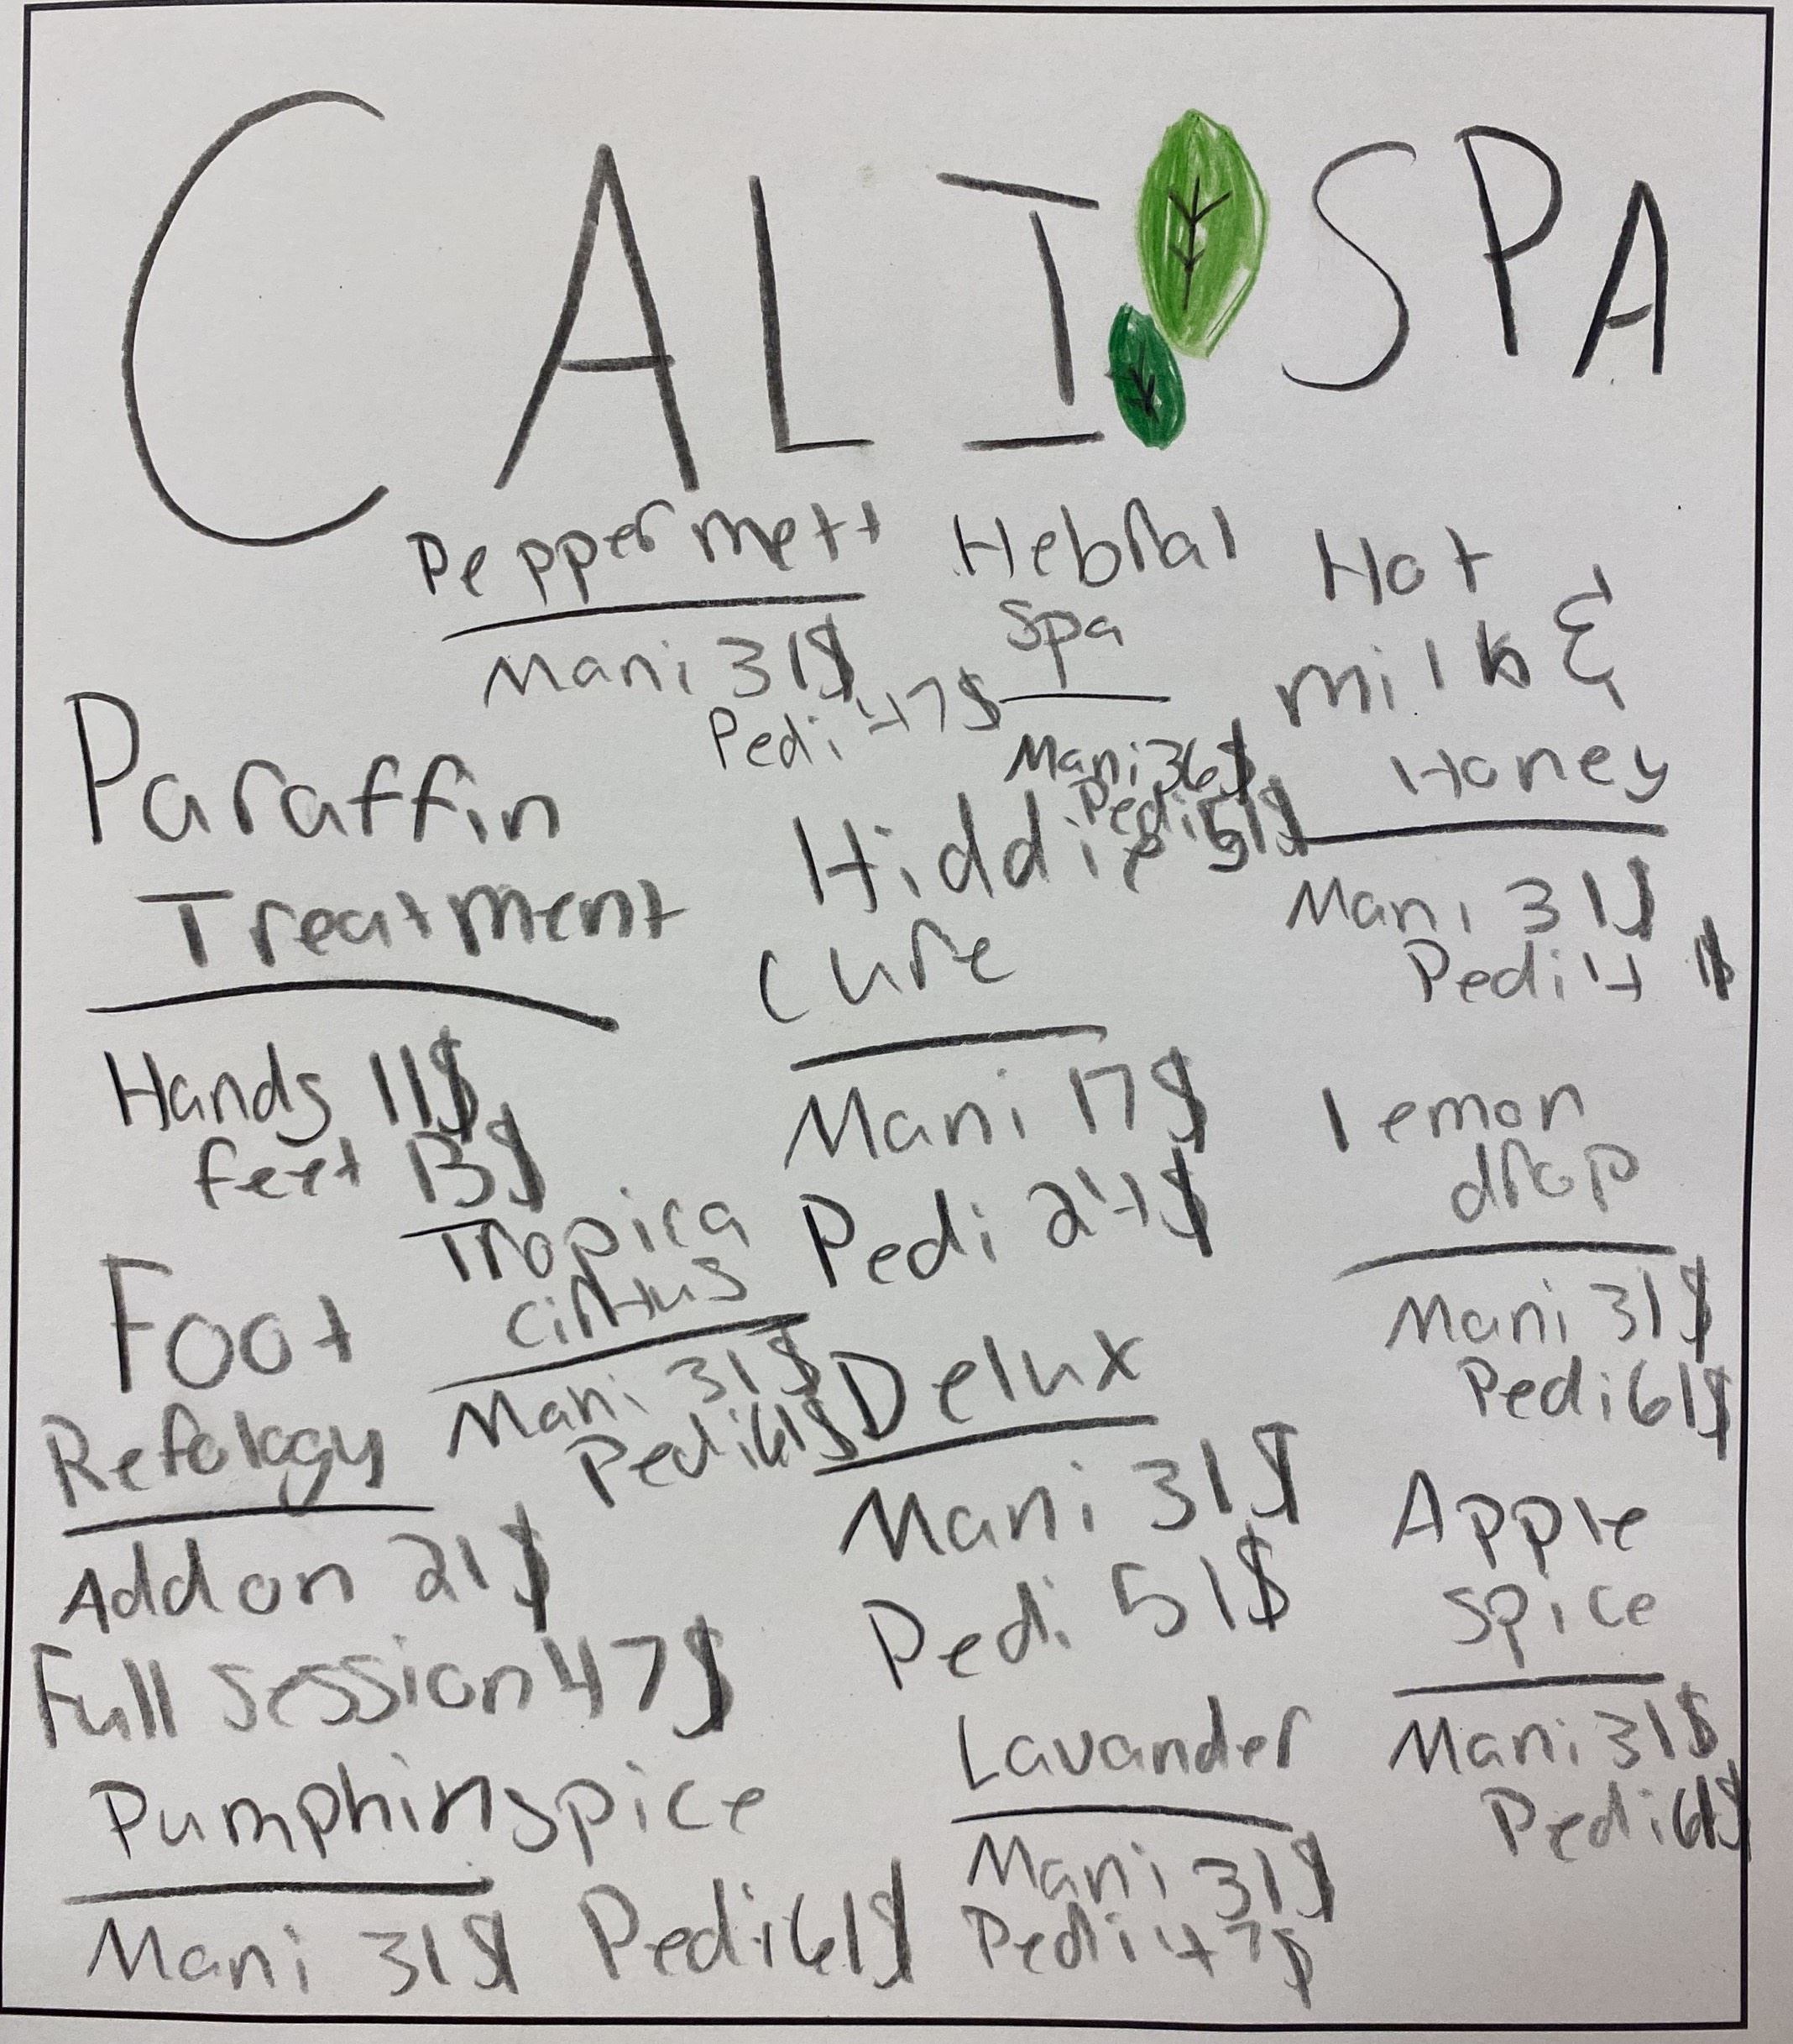 CALI SPA
Peppermett
Mani 31$
Pedi 47$
Hebral
Spa
Mani 36$
Pedi 51$
Hot
milk &
Honey
Mani 31$
Pedi 4 $
Paraffin
Treatment
Hands 11$
feet 13$
Hiddie
cure
Mani 17$
Pedi 24$
lemon
drop
Mani 31$
Pedi 61$
Tropica
cirtus
Mani 31$
Pedi 61$
Foot
Refology
Add on 21$
Full Session 47$
Delux
Mani 31$
Pedi 51$
Apple
Spice
Mani 31$
Pedi 61$
Pumphin spice
Mani 31$ Pedi 61$
Lavander
Mani 31$
Pedi 47$